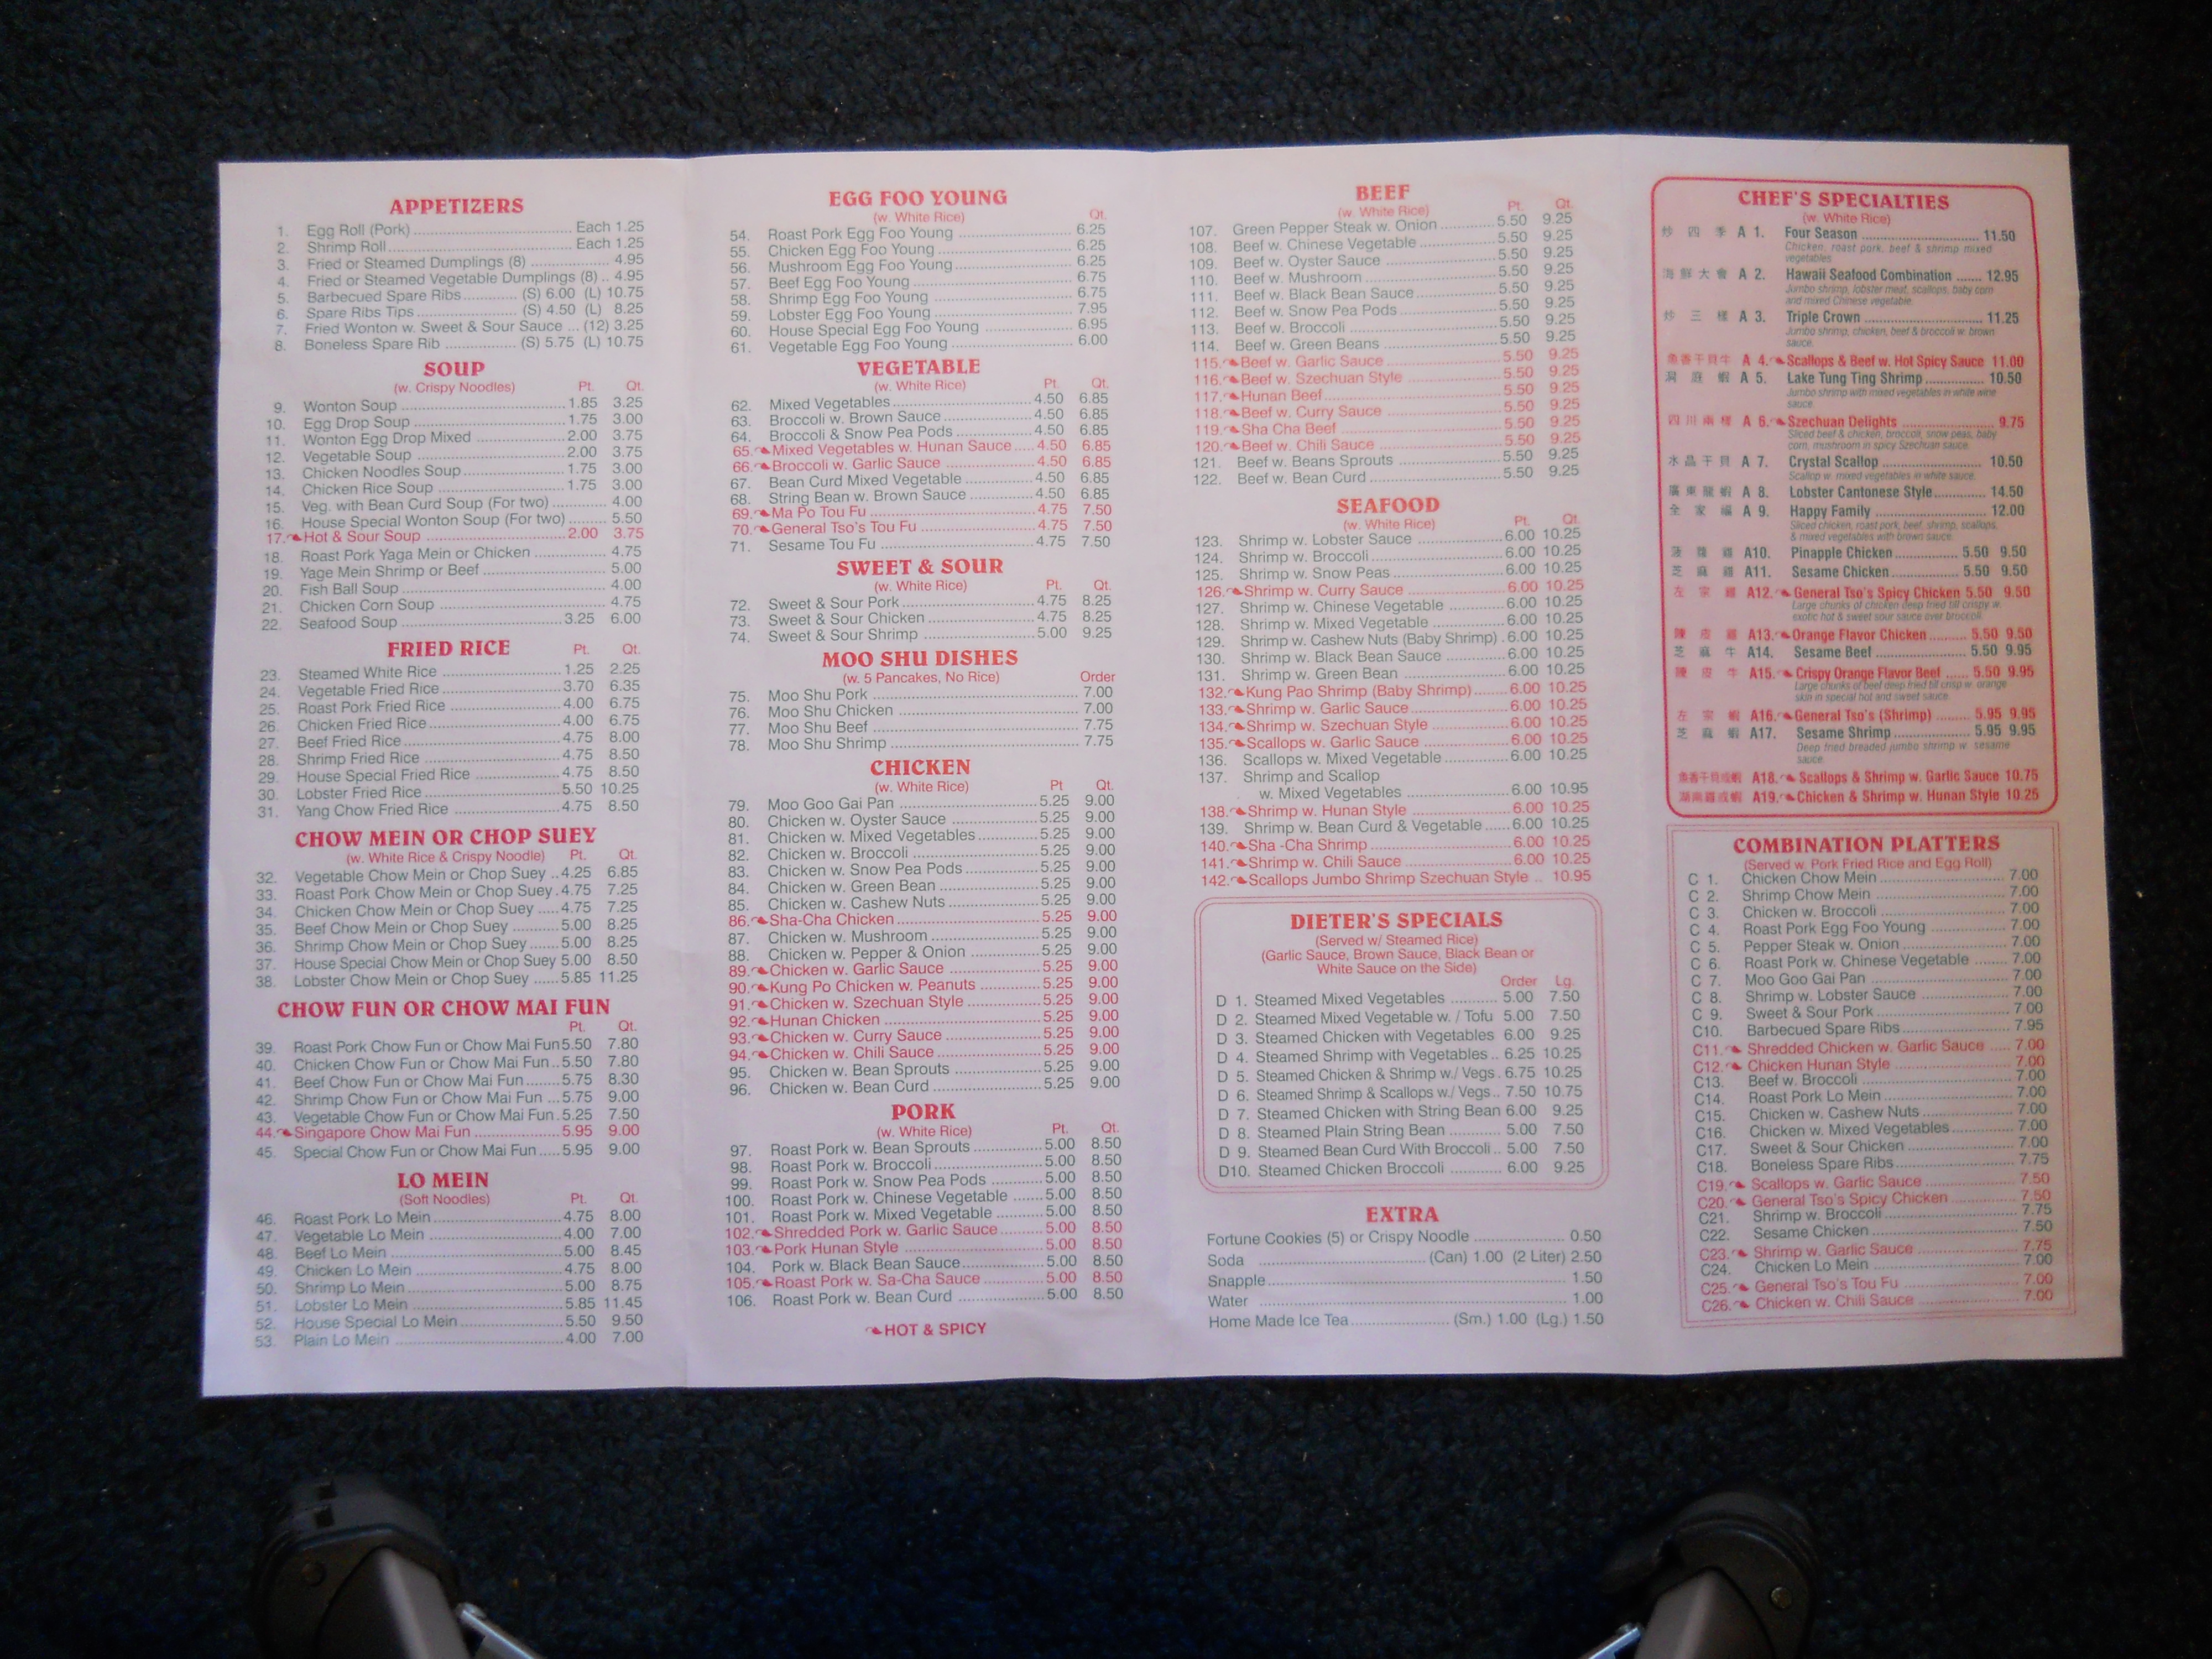 APPETIZERS
1. Egg Roll (Pork) Each 1.25
2. Shrimp Roll Each 1.25
3. Fried or Steamed Dumplings (8) 4.95
4. Fried or Steamed Vegetable Dumplings (8) 4.95
5. Barbecued Spare Ribs (S) 6.00 (L) 10.75
6. Spare Ribs Tips (S) 4.50 (L) 8.25
7. Fried Wonton w. Sweet & Sour Sauce (12) 3.25
8. Boneless Spare Rib (S) 5.75 (L) 10.75
SOUP
(w. Crispy Noodles) Pt. Qt.
9. Wonton Soup 1.85 3.25
10. Egg Drop Soup 1.75 3.00
11. Wonton Egg Drop Mixed 2.00 3.75
12. Vegetable Soup 2.00 3.75
13. Chicken Noodles Soup 1.75 3.00
14. Chicken Rice Soup 1.75 3.00
15. Veg. with Bean Curd Soup (For two) 4.00
16. House Special Wonton Soup (For two) 5.50
17. Hot & Sour Soup 2.00 3.75
18. Roast Pork Yaga Mein or Chicken 4.75
19. Yage Mein Shrimp or Beef 5.00
20. Fish Ball Soup 4.00
21. Chicken Corn Soup 4.75
22. Seafood Soup 3.25 6.00
FRIED RICE Pt. Qt.
23. Steamed White Rice 1.25 2.25
24. Vegetable Fried Rice 3.70 6.35
25. Roast Pork Fried Rice 4.00 6.75
26. Chicken Fried Rice 4.00 6.75
27. Beef Fried Rice 4.75 8.00
28. Shrimp Fried Rice 4.75 8.50
29. House Special Fried Rice 4.75 8.50
30. Lobster Fried Rice 5.50 10.25
31. Yang Chow Fried Rice 4.75 8.50
CHOW MEIN OR CHOP SUEY
(w. White Rice & Crispy Noodle) Pt. Qt.
32. Vegetable Chow Mein or Chop Suey 4.25 6.85
33. Roast Pork Chow Mein or Chop Suey 4.75 7.25
34. Chicken Chow Mein or Chop Suey 4.75 7.25
35. Beef Chow Mein or Chop Suey 5.00 8.25
36. Shrimp Chow Mein or Chop Suey 5.00 8.25
37. House Special Chow Mein or Chop Suey 5.00 8.50
38. Lobster Chow Mein or Chop Suey 5.85 11.25
CHOW FUN OR CHOW MAI FUN
Pt. Qt.
39. Roast Pork Chow Fun or Chow Mai Fun 5.50 7.80
40. Chicken Chow Fun or Chow Mai Fun 5.50 7.80
41. Beef Chow Fun or Chow Mai Fun 5.75 8.30
42. Shrimp Chow Fun or Chow Mai Fun 5.75 9.00
43. Vegetable Chow Fun or Chow Mai Fun 5.25 7.50
44. Singapore Chow Mai Fun 5.95 9.00
45. Special Chow Fun or Chow Mai Fun 5.95 9.00
LO MEIN
(Soft Noodles) Pt. Qt.
46. Roast Pork Lo Mein 4.75 8.00
47. Vegetable Lo Mein 4.00 7.00
48. Beef Lo Mein 5.00 8.45
49. Chicken Lo Mein 4.75 8.00
50. Shrimp Lo Mein 5.00 8.75
51. Lobster Lo Mein 5.85 11.45
52. House Special Lo Mein 5.50 9.50
53. Plain Lo Mein 4.00 7.00
EGG FOO YOUNG
(w. White Rice) Qt.
54. Roast Pork Egg Foo Young 6.25
55. Chicken Egg Foo Young 6.25
56. Mushroom Egg Foo Young 6.25
57. Beef Egg Foo Young 6.75
58. Shrimp Egg Foo Young 6.75
59. Lobster Egg Foo Young 7.95
60. House Special Egg Foo Young 6.95
61. Vegetable Egg Foo Young 6.00
VEGETABLE
(w. White Rice) Pt. Qt.
62. Mixed Vegetables 4.50 6.85
63. Broccoli w. Brown Sauce 4.50 6.85
64. Broccoli & Snow Pea Pods 4.50 6.85
65. Mixed Vegetables w. Hunan Sauce 4.50 6.85
66. Broccoli w. Garlic Sauce 4.50 6.85
67. Bean Curd Mixed Vegetable 4.50 6.85
68. String Bean w. Brown Sauce 4.50 6.85
69. Ma Po Tou Fu 4.75 7.50
70. General Tso's Tou Fu 4.75 7.50
71. Sesame Tou Fu 4.75 7.50
SWEET & SOUR
(w. White Rice) Pt. Qt.
72. Sweet & Sour Pork 4.75 8.25
73. Sweet & Sour Chicken 4.75 8.25
74. Sweet & Sour Shrimp 5.00 9.25
MOO SHU DISHES
(w. 5 Pancakes, No Rice) Order
75. Moo Shu Pork 7.00
76. Moo Shu Chicken 7.00
77. Moo Shu Beef 7.75
78. Moo Shu Shrimp 7.75
CHICKEN
(w. White Rice) Pt Qt.
79. Moo Goo Gai Pan 5.25 9.00
80. Chicken w. Oyster Sauce 5.25 9.00
81. Chicken w. Mixed Vegetables 5.25 9.00
82. Chicken w. Broccoli 5.25 9.00
83. Chicken w. Snow Pea Pods 5.25 9.00
84. Chicken w. Green Bean 5.25 9.00
85. Chicken w. Cashew Nuts 5.25 9.00
86. Sha-Cha Chicken 5.25 9.00
87. Chicken w. Mushroom 5.25 9.00
88. Chicken w. Pepper & Onion 5.25 9.00
89. Chicken w. Garlic Sauce 5.25 9.00
90. Kung Po Chicken w. Peanuts 5.25 9.00
91. Chicken w. Szechuan Style 5.25 9.00
92. Hunan Chicken 5.25 9.00
93. Chicken w. Curry Sauce 5.25 9.00
94. Chicken w. Chili Sauce 5.25 9.00
95. Chicken w. Bean Sprouts 5.25 9.00
96. Chicken w. Bean Curd 5.25 9.00
PORK
(w. White Rice) Pt. Qt.
97. Roast Pork w. Bean Sprouts 5.00 8.50
98. Roast Pork w. Broccoli 5.00 8.50
99. Roast Pork w. Snow Pea Pods 5.00 8.50
100. Roast Pork w. Chinese Vegetable 5.00 8.50
101. Roast Pork w. Mixed Vegetable 5.00 8.50
102. Shredded Pork w. Garlic Sauce 5.00 8.50
103. Pork Hunan Style 5.00 8.50
104. Pork w. Black Bean Sauce 5.00 8.50
105. Roast Pork w. Sa-Cha Sauce 5.00 8.50
106. Roast Pork w. Bean Curd 5.00 8.50
HOT & SPICY
BEEF
(w. White Rice) Pt. Qt.
107. Green Pepper Steak w. Onion 5.50 9.25
108. Beef w. Chinese Vegetable 5.50 9.25
109. Beef w. Oyster Sauce 5.50 9.25
110. Beef w. Mushroom 5.50 9.25
111. Beef w. Black Bean Sauce 5.50 9.25
112. Beef w. Snow Pea Pods 5.50 9.25
113. Beef w. Broccoli 5.50 9.25
114. Beef w. Green Beans 5.50 9.25
115. Beef w. Garlic Sauce 5.50 9.25
116. Beef w. Szechuan Style 5.50 9.25
117. Hunan Beef 5.50 9.25
118. Beef w. Curry Sauce 5.50 9.25
119. Sha Cha Beef 5.50 9.25
120. Beef w. Chili Sauce 5.50 9.25
121. Beef w. Beans Sprouts 5.50 9.25
122. Beef w. Bean Curd 5.50 9.25
SEAFOOD
(w. White Rice) Pt. Qt.
123. Shrimp w. Lobster Sauce 6.00 10.25
124. Shrimp w. Broccoli 6.00 10.25
125. Shrimp w. Snow Peas 6.00 10.25
126. Shrimp w. Curry Sauce 6.00 10.25
127. Shrimp w. Chinese Vegetable 6.00 10.25
128. Shrimp w. Mixed Vegetable 6.00 10.25
129. Shrimp w. Cashew Nuts (Baby Shrimp) 6.00 10.25
130. Shrimp w. Black Bean Sauce 6.00 10.25
131. Shrimp w. Green Bean 6.00 10.25
132. Kung Pao Shrimp (Baby Shrimp) 6.00 10.25
133. Shrimp w. Garlic Sauce 6.00 10.25
134. Shrimp w. Szechuan Style 6.00 10.25
135. Scallops w. Garlic Sauce 6.00 10.25
136. Scallops w. Mixed Vegetable 6.00 10.25
137. Shrimp and Scallop
w. Mixed Vegetables 6.00 10.95
138. Shrimp w. Hunan Style 6.00 10.25
139. Shrimp w. Bean Curd & Vegetable 6.00 10.25
140. Sha -Cha Shrimp 6.00 10.25
141. Shrimp w. Chili Sauce 6.00 10.25
142. Scallops Jumbo Shrimp Szechuan Style 10.95
DIETER'S SPECIALS
(Served w/ Steamed Rice)
(Garlic Sauce, Brown Sauce, Black Bean or
White Sauce on the Side)
Order Lg.
D 1. Steamed Mixed Vegetables 5.00 7.50
D 2. Steamed Mixed Vegetable w. / Tofu 5.00 7.50
D 3. Steamed Chicken with Vegetables 6.00 9.25
D 4. Steamed Shrimp with Vegetables 6.25 10.25
D 5. Steamed Chicken & Shrimp w./ Vegs 6.75 10.25
D 6. Steamed Shrimp & Scallops w./ Vegs 7.50 10.75
D 7. Steamed Chicken with String Bean 6.00 9.25
D 8. Steamed Plain String Bean 5.00 7.50
D 9. Steamed Bean Curd With Broccoli 5.00 7.50
D10. Steamed Chicken Broccoli 6.00 9.25
EXTRA
Fortune Cookies (5) or Crispy Noodle 0.50
Soda (Can) 1.00 (2 Liter) 2.50
Snapple 1.50
Water 1.00
Home Made Ice Tea (Sm.) 1.00 (Lg.) 1.50
CHEF'S SPECIALTIES
(w. White Rice)
炒四季 A 1. Four Season 11.50
Chicken, roast pork, beef & shrimp mixed
vegetables
海鮮大會 A 2. Hawaii Seafood Combination 12.95
Jumbo shrimp, lobster meat, scallops, baby corn
and mixed Chinese vegetable.
炒三樣 A 3. Triple Crown 11.25
Jumbo shrimp, chicken, beef & broccoli w. brown
sauce.
魚香干貝牛 A 4. Scallops & Beef w. Hot Spicy Sauce 11.00
洞庭蝦 A 5. Lake Tung Ting Shrimp 10.50
Jumbo shrimp with mixed vegetables in white wine
sauce.
四川兩樣 A 6. Szechuan Delights 9.75
Sliced beef & chicken, broccoli, snow peas, baby
corn, mushroom in spicy Szechuan sauce.
水晶干貝 A 7. Crystal Scallop 10.50
Scallop w. mixed vegetables in white sauce.
廣東龍蝦 A 8. Lobster Cantonese Style 14.50
全家福 A 9. Happy Family 12.00
Sliced chicken, roast pork, beef, shrimp, scallops,
& mixed vegetables with brown sauce.
菠蘿雞 A10. Pinapple Chicken 5.50 9.50
芝麻雞 A11. Sesame Chicken 5.50 9.50
左宗雞 A12. General Tso's Spicy Chicken 5.50 9.50
Large chunks of chicken deep fried till crispy w.
exotic hot & sweet sour sauce over broccoli.
陳皮雞 A13. Orange Flavor Chicken 5.50 9.50
芝麻牛 A14. Sesame Beef 5.50 9.95
陳皮牛 A15. Crispy Orange Flavor Beef 5.50 9.95
Large chunks of beef deep fried till crisp w. orange
skin in special hot and sweet sauce.
左宗蝦 A16. General Tso's (Shrimp) 5.95 9.95
芝麻蝦 A17. Sesame Shrimp 5.95 9.95
Deep fried breaded jumbo shrimp w. sesame
sauce.
魚香干貝或蝦 A18. Scallops & Shrimp w. Garlic Sauce 10.75
湖南雞或蝦 A19. Chicken & Shrimp w. Hunan Style 10.25
COMBINATION PLATTERS
(Served w. Pork Fried Rice and Egg Roll)
C 1. Chicken Chow Mein 7.00
C 2. Shrimp Chow Mein 7.00
C 3. Chicken w. Broccoli 7.00
C 4. Roast Pork Egg Foo Young 7.00
C 5. Pepper Steak w. Onion 7.00
C 6. Roast Pork w. Chinese Vegetable 7.00
C 7. Moo Goo Gai Pan 7.00
C 8. Shrimp w. Lobster Sauce 7.00
C 9. Sweet & Sour Pork 7.00
C10. Barbecued Spare Ribs 7.95
C11. Shredded Chicken w. Garlic Sauce 7.00
C12. Chicken Hunan Style 7.00
C13. Beef w. Broccoli 7.00
C14. Roast Pork Lo Mein 7.00
C15. Chicken w. Cashew Nuts 7.00
C16. Chicken w. Mixed Vegetables 7.00
C17. Sweet & Sour Chicken 7.00
C18. Boneless Spare Ribs 7.75
C19. Scallops w. Garlic Sauce 7.50
C20. General Tso's Spicy Chicken 7.50
C21. Shrimp w. Broccoli 7.75
C22. Sesame Chicken 7.50
C23. Shrimp w. Garlic Sauce 7.75
C24. Chicken Lo Mein 7.00
C25. General Tso's Tou Fu 7.00
C26. Chicken w. Chili Sauce 7.00